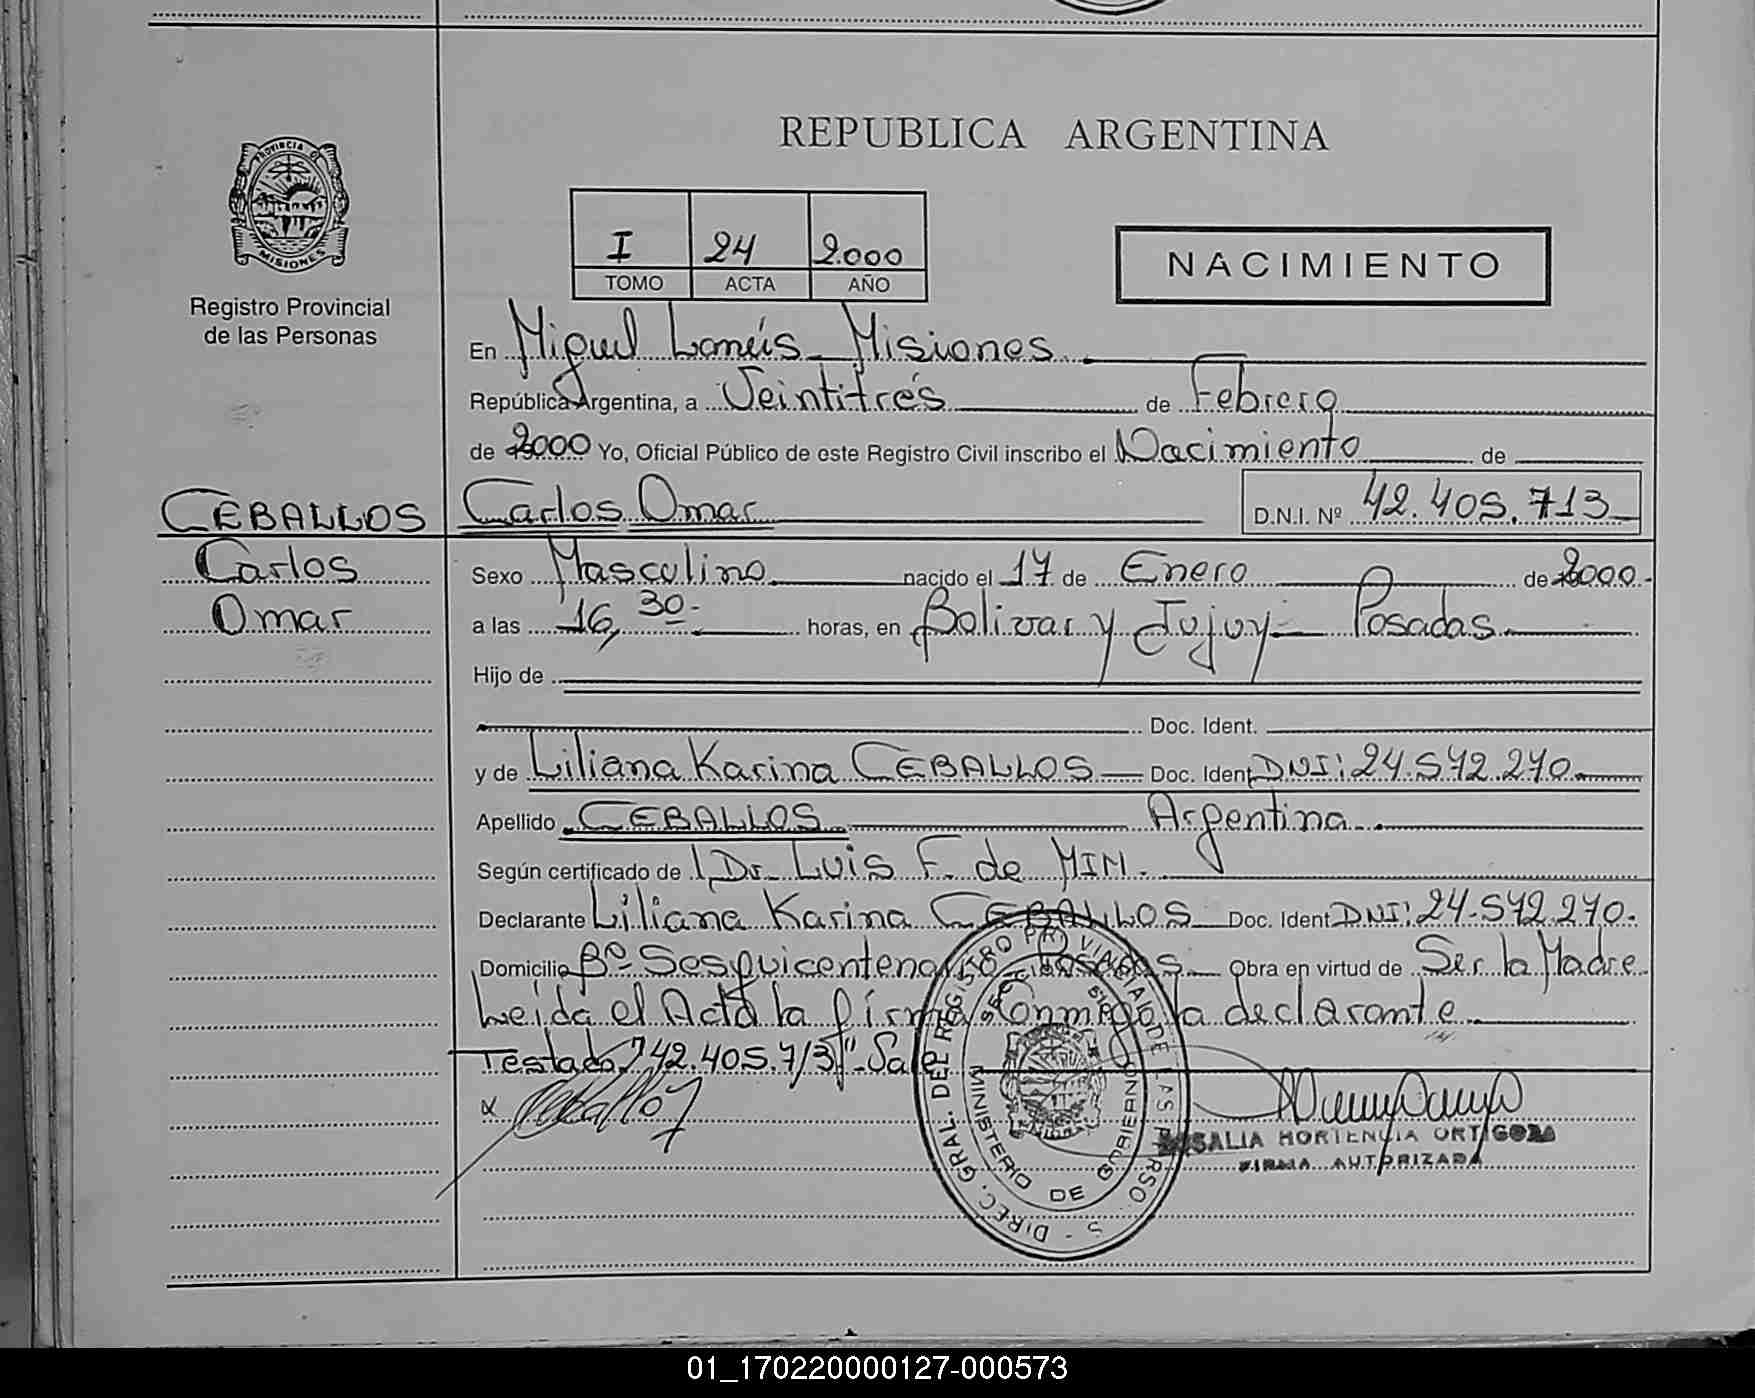 REPUBLICA ARGENTINA
PROVINCIA D
MISIONES
Registro Provincial
de las Personas
I 24 2.000
TOMO ACTA AÑO
NACIMIENTO
En Miguel Lanús - Misiones
República Argentina, a Veintitrés de Febrero
de 2000 Yo, Oficial Público de este Registro Civil inscribo el Nacimiento de
CEBALLOS Carlos Omar D.N.I. Nº 42.405.713
Carlos Sexo Masculino nacido el 17 de Enero de 2000.
Omar a las 16,30- horas, en Bolivar y Jujuy - Posadas
Hijo de
Doc. Ident.
y de Liliana Karina CEBALLOS Doc. Ident DNI: 24.572.270
Apellido CEBALLOS Argentina
Según certificado de Dr. Luis F. de MIM.
Declarante Liliana Karina CEBALLOS Doc. Ident DNI: 24.572.270.
Domicilio Bº Sesquicentenario - Posadas Obra en virtud de Ser la Madre
Leída el Acta la firma Conmigo la declarante
Testado "42.405.713" - Sale
x Ceballos
DIREC. GRAL. DEL REGISTRO PROVINCIAL DE LAS PERSO S -
MINISTERIO DE GOBIERNO
ROSALIA HORTENCIA ORTIGOZA
FIRMA AUTORIZADA
01_170220000127-000573